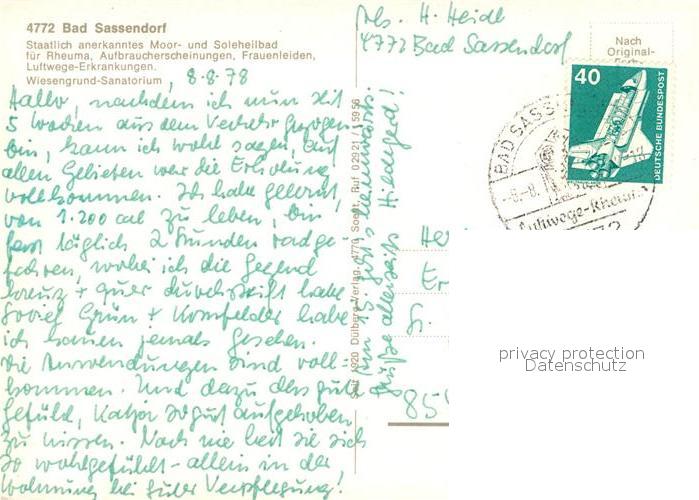 4772 Bad Sassendorf
Staatlich anerkanntes Moor- und Soleheilbad
für Rheuma, Aufbraucherscheinungen, Frauenleiden,
Luftwege-Erkrankungen.
Wiesengrund-Sanatorium
, 8-8-78
Hallo, nachdem ich nun seit
5 Wochen aus dem Verkehr gezogen
bin, kann ich wohl sagen, auf
allen Gebieten war die Erholung
vollkommen. Ich habe gelernt,
von 1.200 cal zu leben, bin
fast täglich 2 Stunden radge-
fahren, wobei ich die Gegend
kreuz + quer durchstreift habe
Soviel Grün + Kornfelder habe
ich kaum jemals gesehen.
Die Anwendungen sind voll-
kommen. Und dazu das gute
Gefühl, Katja so gut aufgehoben
zu wissen. Noch nie hat sie sich
so wohlgefühlt - allein in der
Wohnung bei guter Verpflegung!
Am 15. geht's heimwärts.
Grüße allerseits Hildegard!
Seit 1920 Dülberg-Verlag, 4770 Soest, Ruf 02921 / 5956
Abs. H. Heidl
4772 Bad Sassendorf
Nach
Original-
Farb-
40
DEUTSCHE BUNDESPOST
BAD SASS
-8.-8.
Luftwege-Rheuma
Her
Er
Fr.
85
privacy protection
Datenschutz